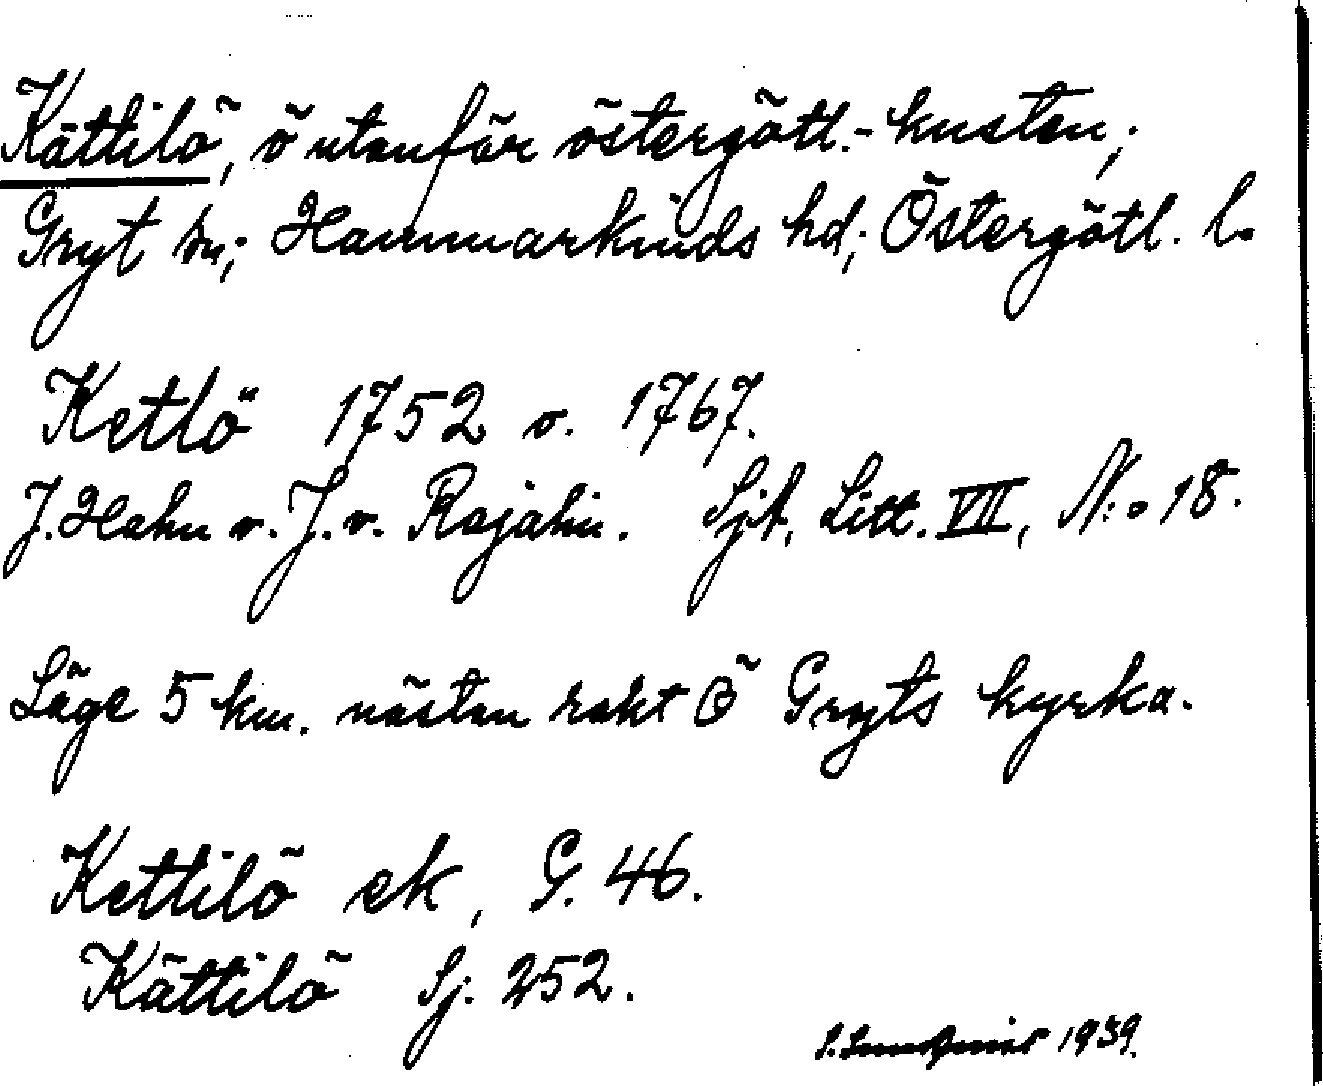 Kättilö, ö utanför östergötl.-kusten;
Gryt sn; Hammarkinds hd; Östergötl. l.
Ketlö 1752 o. 1767.
J. Hahn o. J. v. Rajalin. Sjk, Litt. VII, N:o 18.
Läge 5 km. nästan rakt Ö Gryts kyrka.
Kettilö ek, G. 46.
Kättilö Sj. 252.
1939.